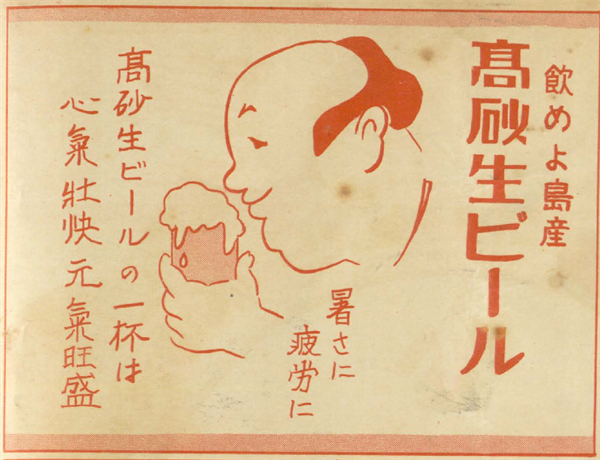 飲めよ島産
髙砂生ビール
暑さに
疲労に
髙砂生ビールの一杯は
心氣壯快元氣旺盛